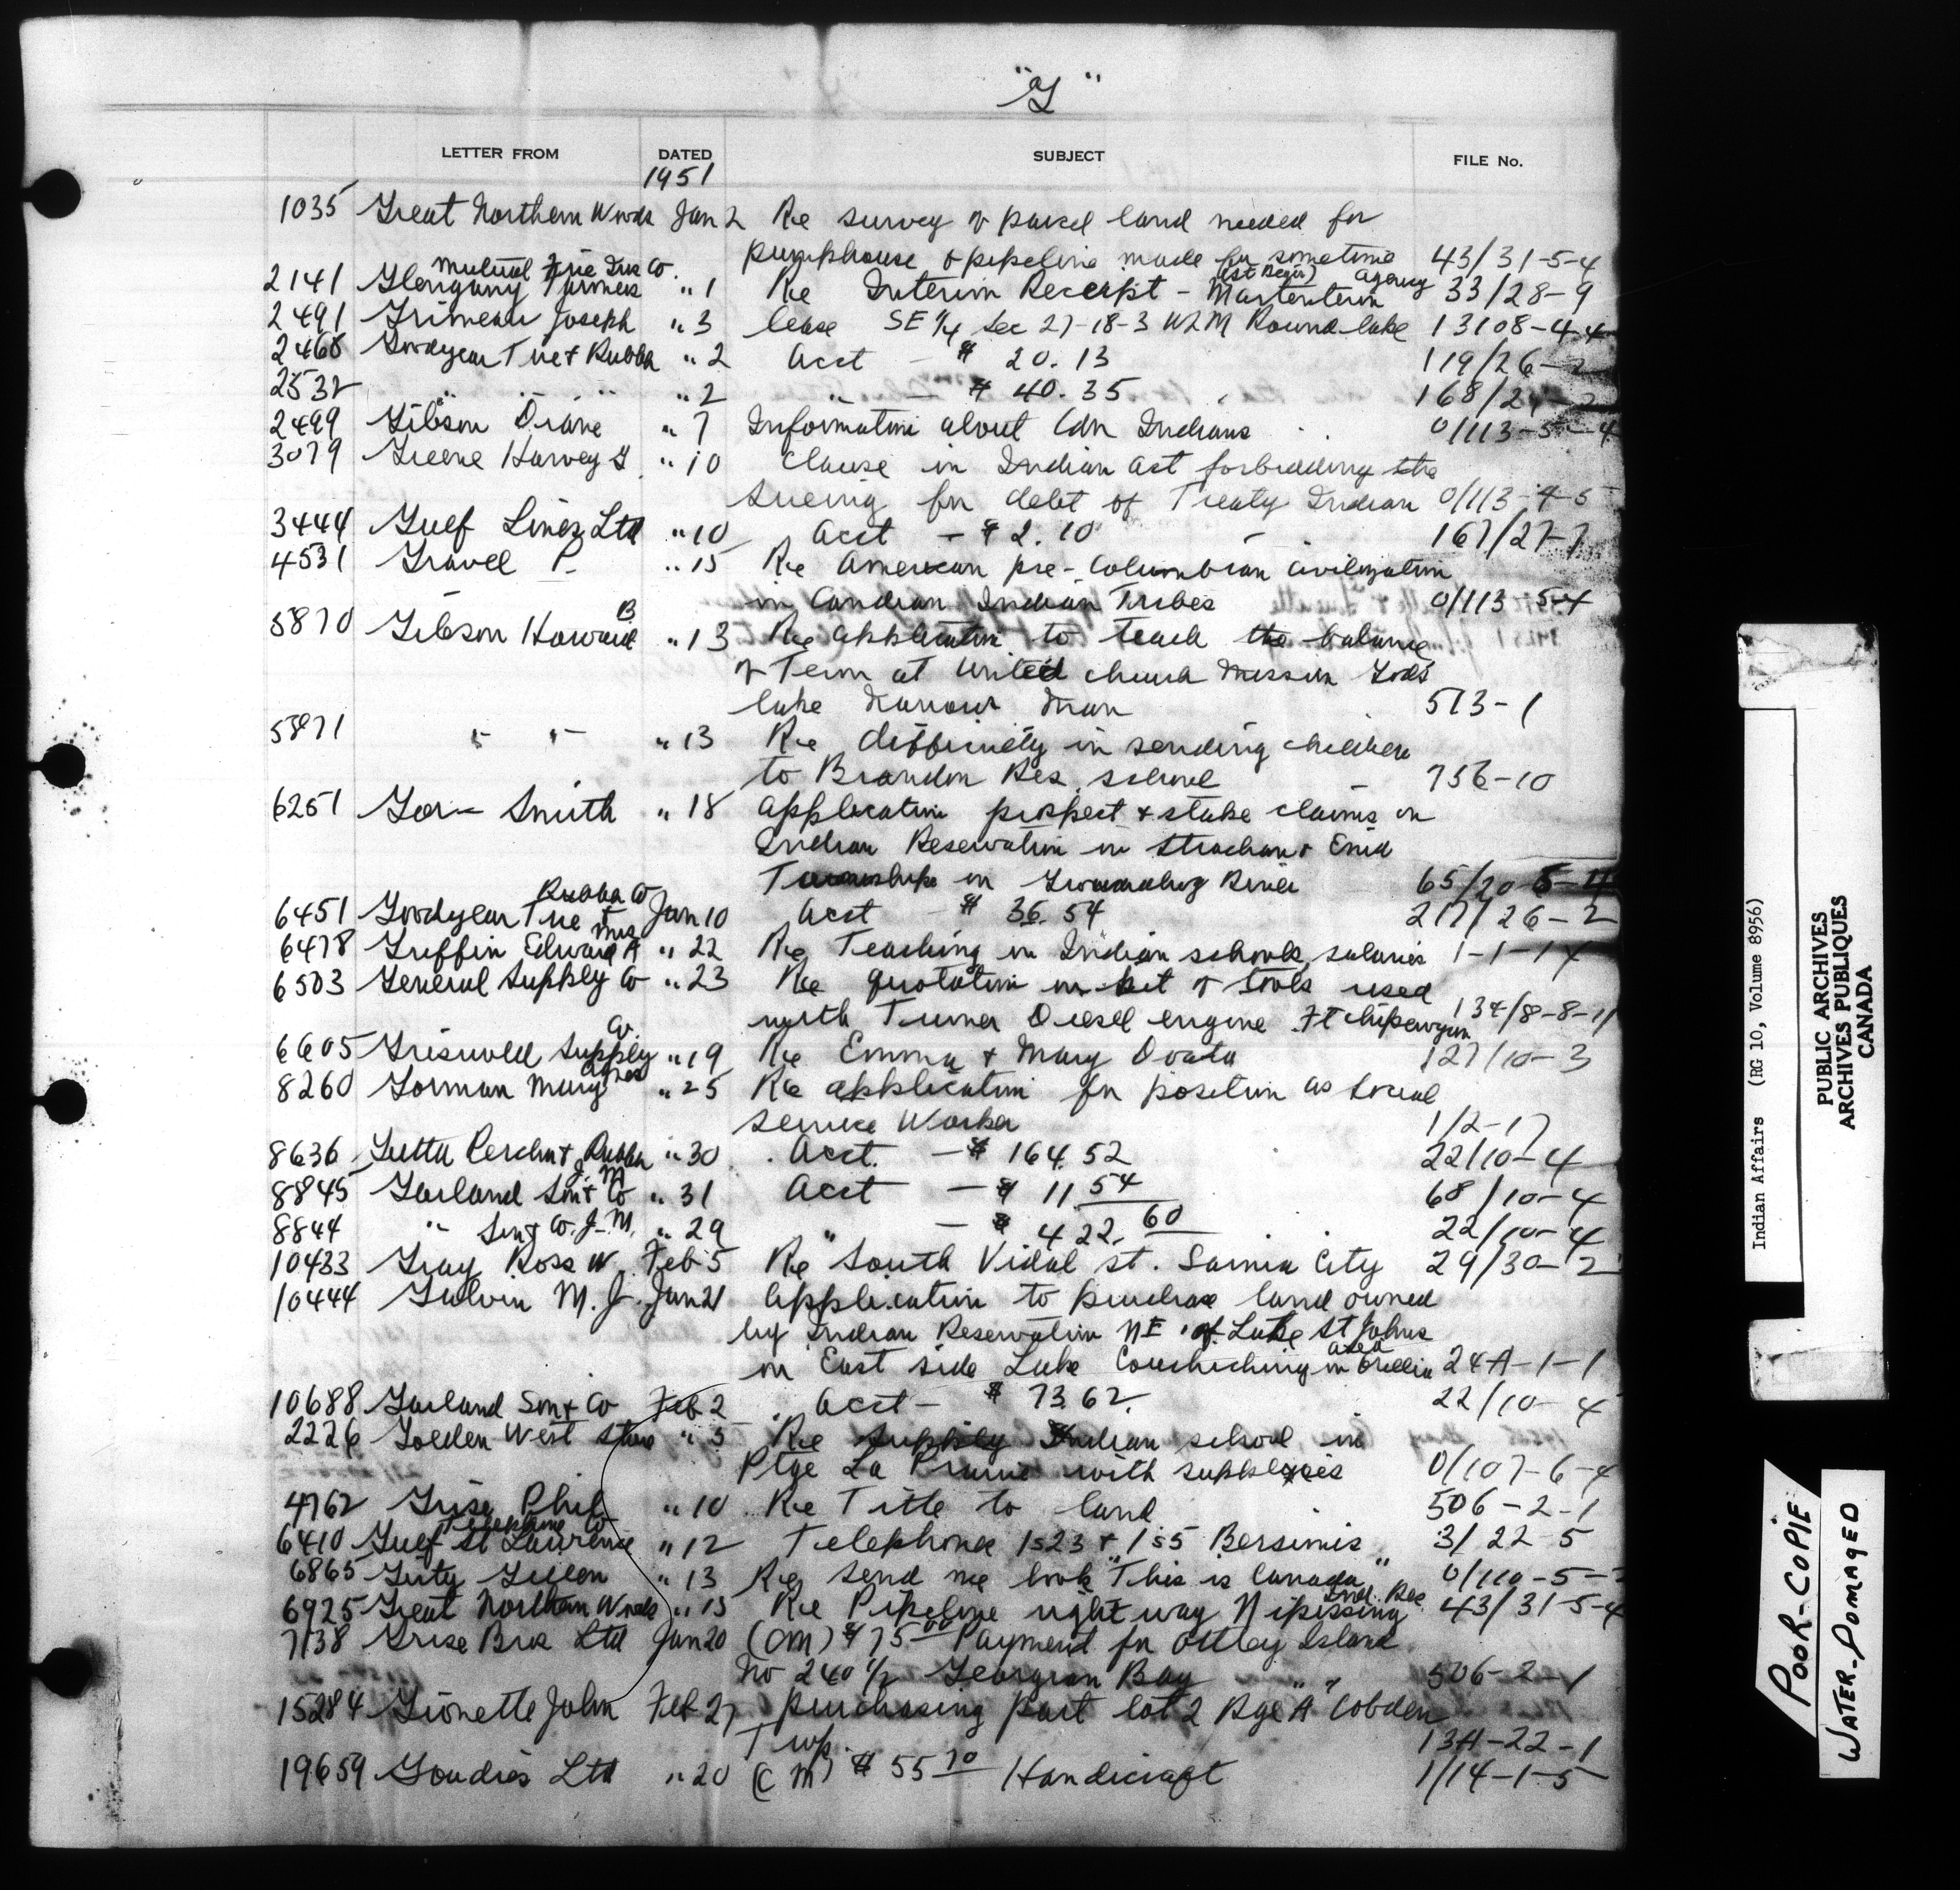 "G"
LETTER FROM DATED SUBJECT FILE No.
1951
1035 Great Northern Woods Jan 2 Re survey of parcel land needed for
pumphouse & pipeline made for sometime 43/31-5-4
2141 Glengarry Farmers Mutual Fire Ins Co. " 1 Re Interim Receipt - Agency 33/28-9
2491 Grimeau Joseph " 3 lease SE 1/4 Sec 27-18-3 W2M Round lake 13108-4-4
2468 Goodyear Tire & Rubber " 2 Acct - $ 20.13 119/26-2
2532 " " " " 2 " - $ 40.35 168/26-2
2499 Gibson Diane " 7 Information about Cdn Indians 0/113-5-4
3079 Greene Harvey G " 10 Clause in Indian Act forbidding the
sueing for debt of Treaty Indian 0/113-4-5
3444 Gulf Lines Ltd " 10 Acct - $ 2.10 167/27-7
4531 Gravel P. " 15 Re American pre-Columbian civilization
in Candian Indian Tribes 0/113-5-4
5870 Gibson Howard B " 13 Re application to teach the balance
of Term at United church Mission Gods
lake Narrows Man 513-1
5871 " " " 13 Re difficulty in sending children
to Brandon Res. school 756-10
6251 Smith " 18 application prospect & stake claims on
Indian Reservation in Strachan & Enid
Townships in River 65/20-5-4
6451 Goodyear Tire & Rubber Co Jan 10 Acct - $ 36.54 217/26-2
6478 Griffin Edward A Mrs " 22 Re Teaching in Indian schools, salaries 1-1-14
6503 General Supply Co " 23 Re quotation on set of tools used
with Turner Diesel engine Ft Chipewyan 134/8-8-11
6605 Griswold Supply Co. " 19 Re Emma & Mary 127/10-3
8260 Gorman Mary Agnes " 25 Re application for position as Social
Service Worker 1/2-17
8636 Gutta Percha & Rubber " 30 Acct. - $ 164.52 22/10-4
8845 Garland Son & Co J. M " 31 Acct - $ 11.54 68/10-4
8844 " Son & Co. J. M. " 29 " - $ 422.60 22/10-4
10433 Gray Ross W. Feb 5 Re South Vidal St. Sarnia City 29/30-2
10444 Galvin M. J. Jan 21 Application to purchase land owned
by Indian Reservation NE of Lake St Johns
on East side Lake Couchiching in Orillia area 24A-1-1
10688 Garland Son & Co Feb 2 Acct - $ 73.62 22/10-4
2226 Golden West Store " 5 Re Supply Indian school in
Ptge La Prairie with supplies 0/107-6-4
4762 Grise Phil " 10 Re Title to land 506-2-1
6410 Gulf St Lawrence Telephone Co " 12 Telephone 1s23 & 1s5 Bersimis 3/22-5
6865 " 13 Re send me book "This is Canada" 0/110-5-
6925 Great Northern Woods " 15 Re Pipeline right way Nipissing Ind. Res 43/31-5-4
7138 Grise Bros Ltd Jan 20 (CM) $ 75.00 Payment for Island
No 240 1/2 Georgian Bay 506-2-1
15284 Gionette John Feb 27 purchasing part lot 2 Rge "A" Cobden
Twp. 13A-22-1
19659 Goudies Ltd " 20 (CM) $ 55.70 Handicraft 1/14-1-5
Indian Affairs (RG 10, Volume 8956)
PUBLIC ARCHIVES
ARCHIVES PUBLIQUES
CANADA
POOR-COPIE
WATER-DOMAGED